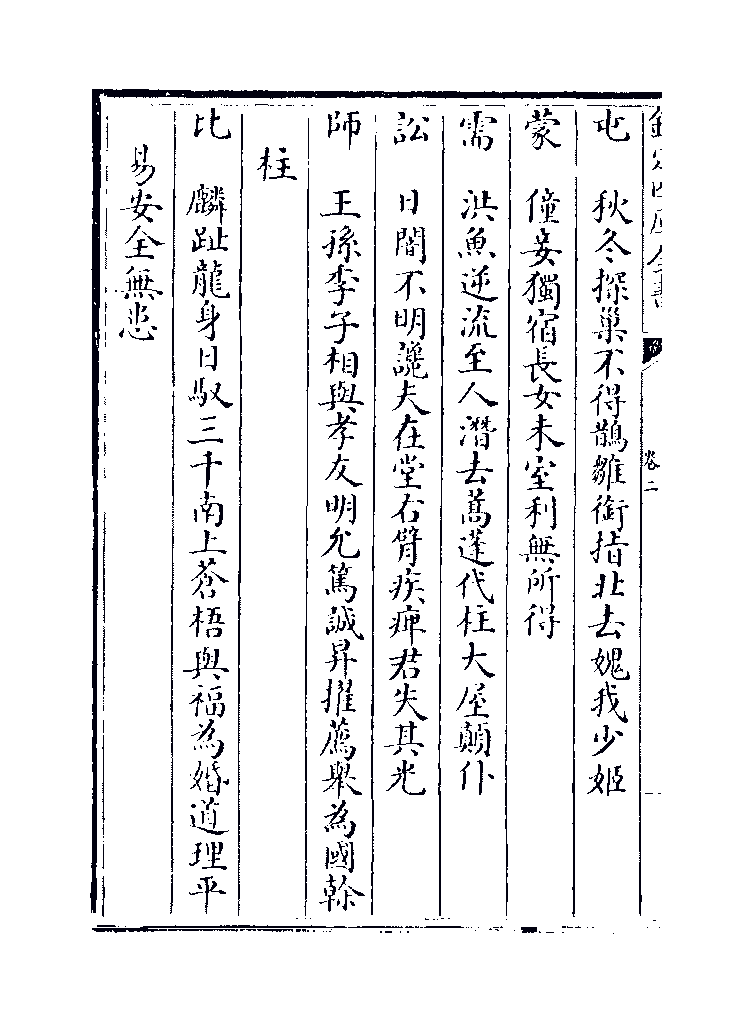 欽定四庫全書
卷二
屯　秋冬探巢不得鵲雛銜指北去媿我少姬
蒙　僮妾獨宿長女未室利無所得
需　洪魚逆流至人潛去蒿蓬代柱大屋顛仆
訟　日闇不明讒夫在堂右臂疾痺君失其光
師　王孫季子相與孝友明允篤誠昇擢薦舉為國幹
柱
比　麟趾龍身日馭三千南上蒼梧與福為婚道理平
易安全無恙